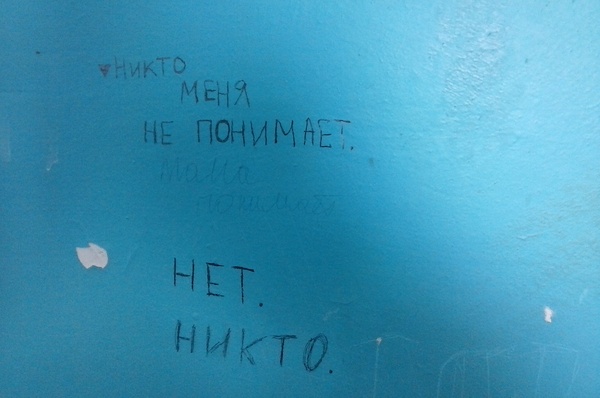 НИКТО
МЕНЯ
НЕ ПОНИМАЕТ.
мама
понимает
НЕТ.
НИКТО.